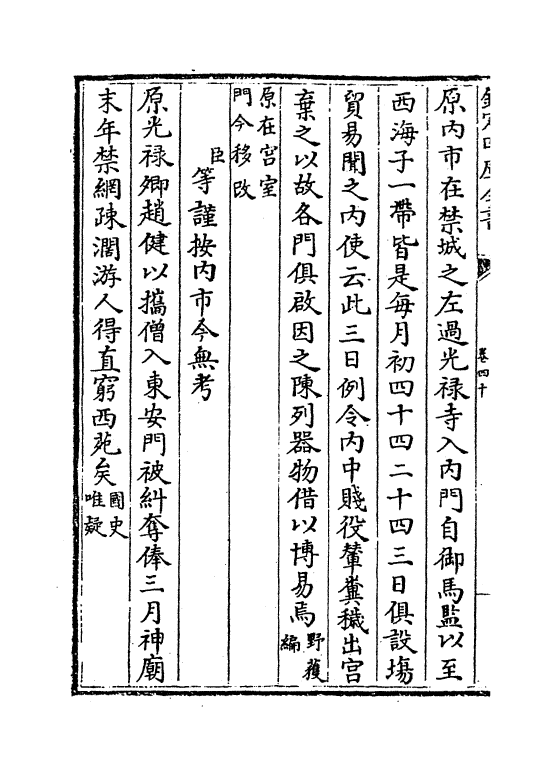 欽定四庫全書
卷四十
原内市在禁城之左過光禄寺入内門自御馬監以至
西海子一帶皆是每月初四十四二十四三日俱設塲
貿易聞之内使云此三日例令内中賤役輦糞穢出宫
棄之以故各門俱啟因之陳列器物借以博易焉野獲編
原在宫室門今移改
臣等謹按内市今無考
原光禄卿趙健以攜僧入東安門被糾奪俸三月神廟
末年禁網疎濶游人得直窮西苑矣國史唯疑